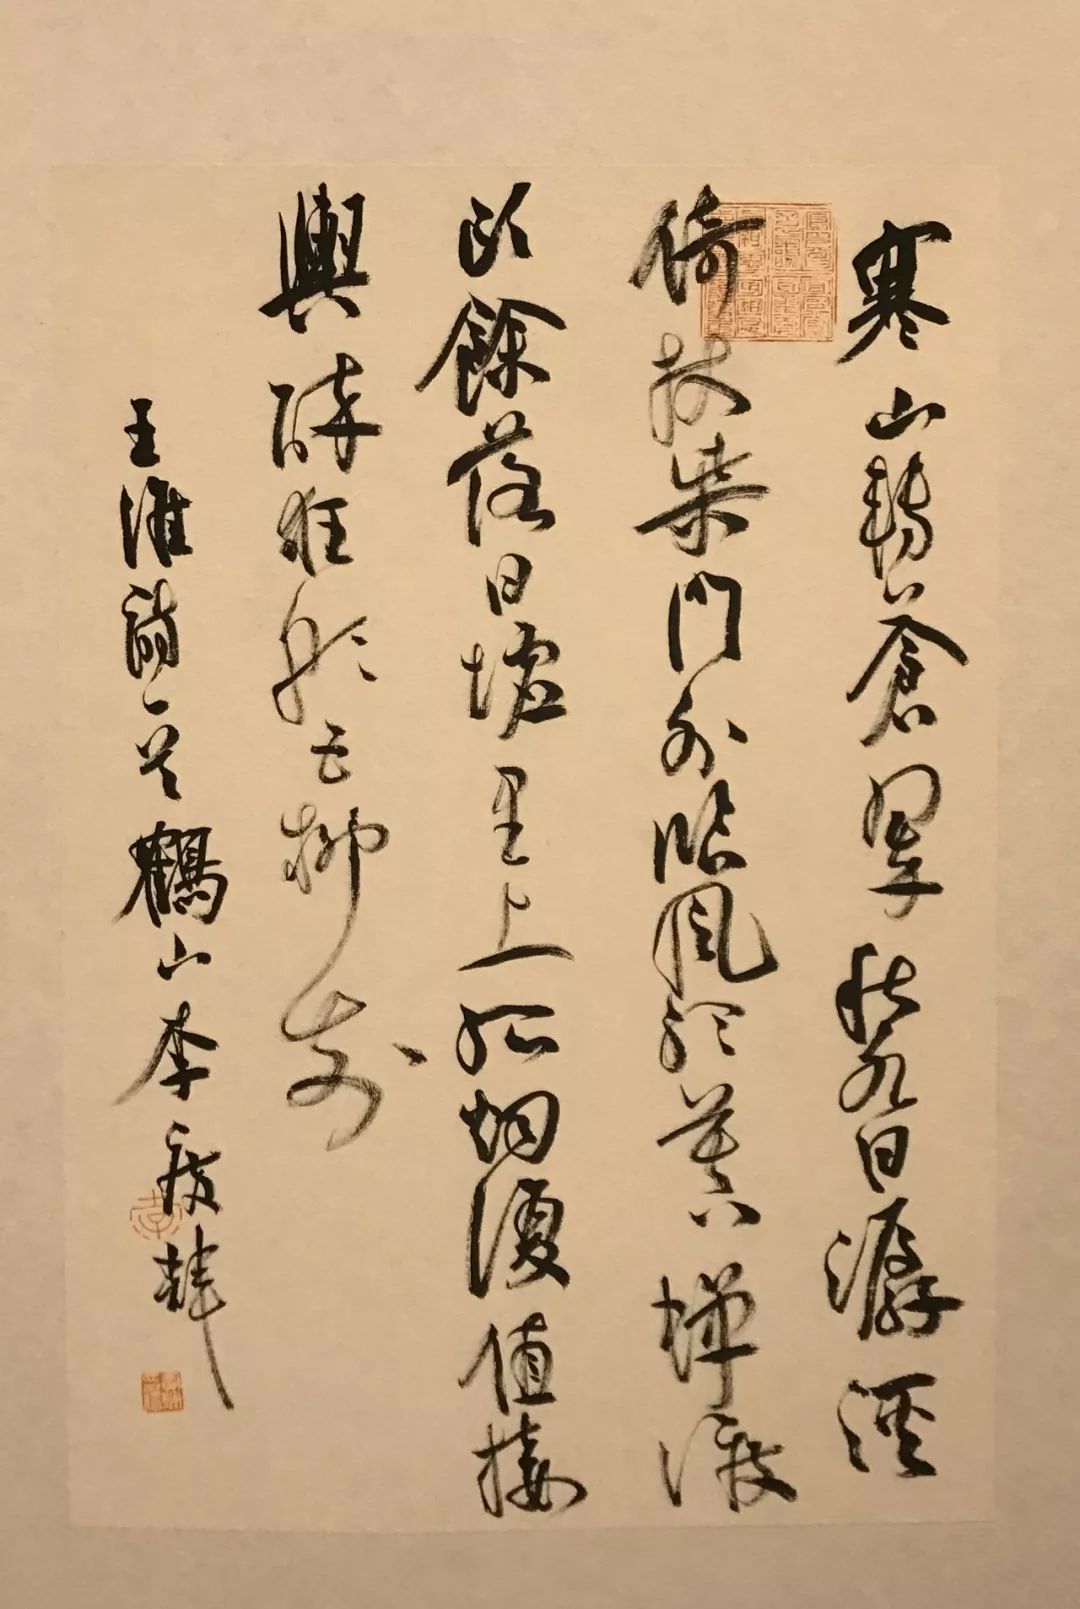 寒山轉蒼翠秋水日潺湲
倚杖柴門外臨風聽暮蟬渡
頭餘落日墟里上孤烟復值接
輿醉狂歌五柳前
王維詩一首鶴山李度輝